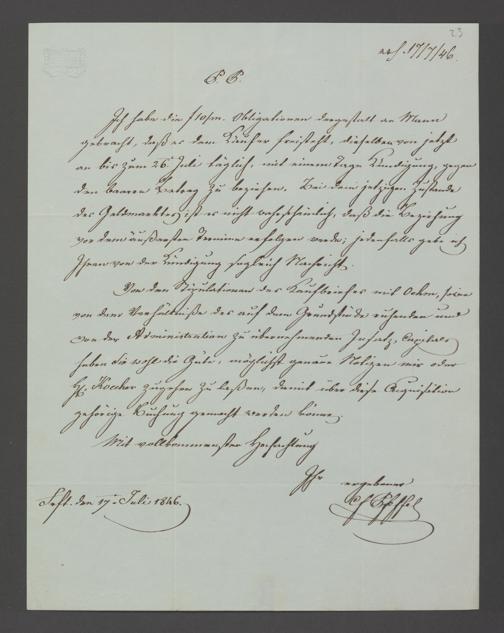 23
erh. 17/7/46.
P. P.
Ich habe die f 10/m. Obligationen dergestalt an Mann
gebracht, daß es dem Käufer freisteht, dieselben von jetzt
an bis zum 26 Juli täglich, mit einem Tage Kündigung, gegen
den baaren Betrag zu beziehen. Bei dem jetzigen Zustande
des Geldmarktes ist es nicht wahrscheinlich, daß die Beziehung
vor dem äußersten Termine erfolgen werde; jedenfalls gebe ich
Ihnen von der Kündigung sogleich Nachricht.
Von den Stipulationen des Kaufbriefes mit
von dem Verhältniße des auf dem Grundstücke ruhenden und
von der Administration zu übernehmenden Insatz-Capitals
haben Sie wohl die Güte, möglichst genaue Notizen mir oder
H. zugehen zu laßen, damit über diese Acquisition
gehörige Buchung gemacht werden könne.
Mit vollkommenster Hochachtung
Ihr ergebener
Frft. den 17 Juli 1846.